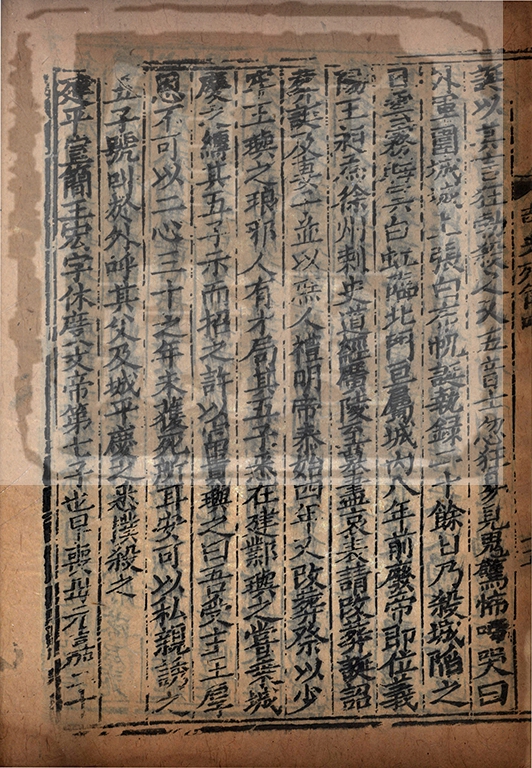 誕以其言狂勃殺人又五音士忽狂易見鬼驚怖啼哭曰
外軍圍城城上張白布帆誕執錄二十餘日乃殺城陷之
日雲霧晦冥白虹臨北門亘屬城內八年前廢帝即位義
陽王昶為徐州刺史道經廣陵至墓盡哀表請改葬誕詔
葬誕及妻子並以庶人禮明帝泰始四年又改葬祭以少
牢王璵之琅邪人有才局其五子悉在建鄴璵之嘗乘城
慶之縛其五子示而招之許以富貴璵之曰吾受主王厚
恩不可以二心三十之年未獲死所耳安可以私親誘之
五子號叫於外呼其父及城平慶之悉撲殺之
建平宣簡王宏字休度文帝第七子也早喪母元嘉二十